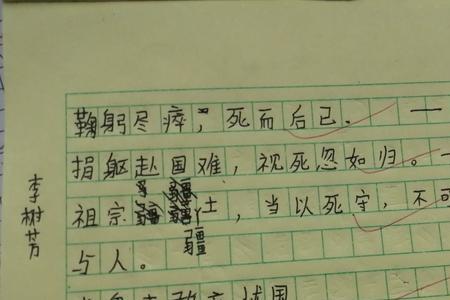 鞠躬尽瘁，死而后已．一
捐躯赴国难，视死忽如归。一
祖宗疆土，当以死守，不可
疆
与人。
国
李树芳